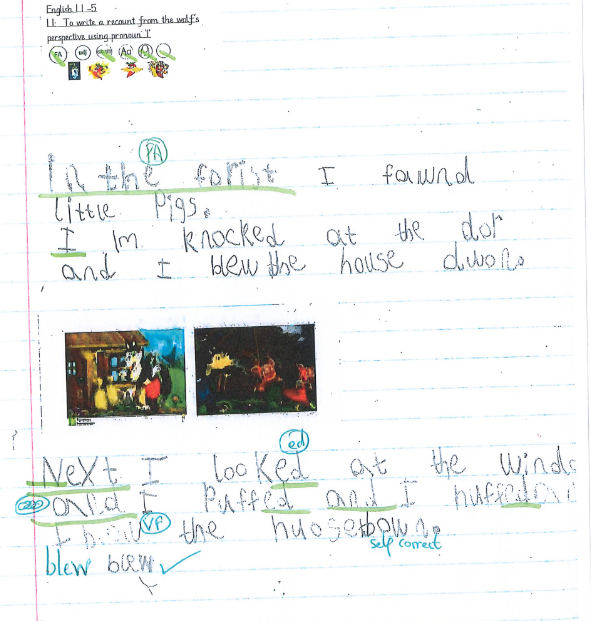 English 1.1-5
L.I: To write a recount from the wolf's
perspective using pronoun 'I'
FA
Aa
FA
In the forist I fawnd
little Pigs.
I Im knocked at the dor
and I blew the house dwon.
ed
Next I looked at the windo
and I Puffed and I huffed and
VF
I the huose down.
self correct
blew blew ✓